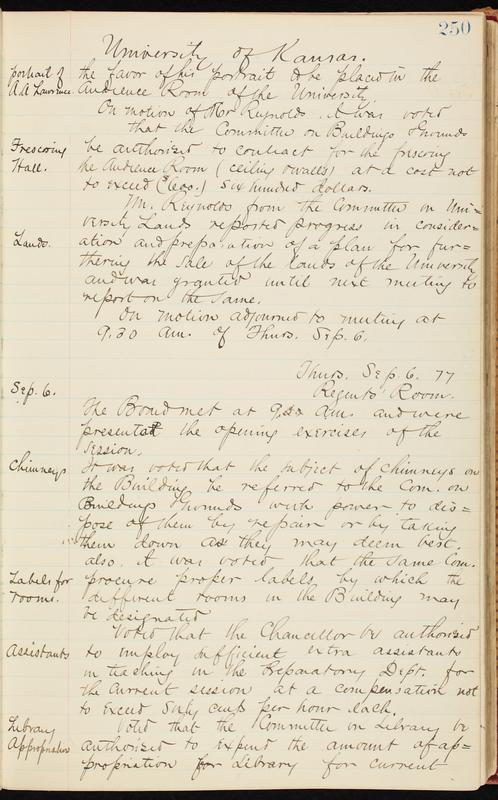 250
University of Kansas.
portrait of the favor of his portrait to be placed in the
A.A Lawrence Audience Room of the University.
On motion of Mr Reynolds. it was voted
that the Committee on Buildings & Grounds
Frescoing be authorized to contract for the friscoing
Hall. the Audience Room (ceiling & walls) at a cost not
to exceed ($600.) six hundred dollars.
Mr. Reynolds from the Committee on Uni=
versity Lands reported progress in consider=
Lands. ation and preparation of a plan for fur=
thering the sale of the lands of the University
and was granted until next meeting to
report on the same.
On motion adjourned to meeting at
9.30 am. of Thurs. Sep. 6.
Thurs. Sep 6. 77
Sep. 6. Regents Room.
The Board met at 9.30 Am. and were
present at the opening exercises of the
session.
Chimneys It was voted that the subject of chimneys on
the Building be referred to the Com. on
Buildings & Grounds with power to dis=
pose of them by repair or by taking
them down as they may deem best
also. it was voted that the same Com.
Labels for procure proper labels by which the
rooms. different rooms in the Building may
be designated
Voted that the Chancellor be authorized
Assistants to employ sufficient extra assistants
in teaching in the Preparatory Dept. for
the current session at a compensation not
to exceed sixty cents per hour each.
Library Voted that the Committee on Library be
Appropriation authorized to expend the amount of ap=
propriation for Library for current